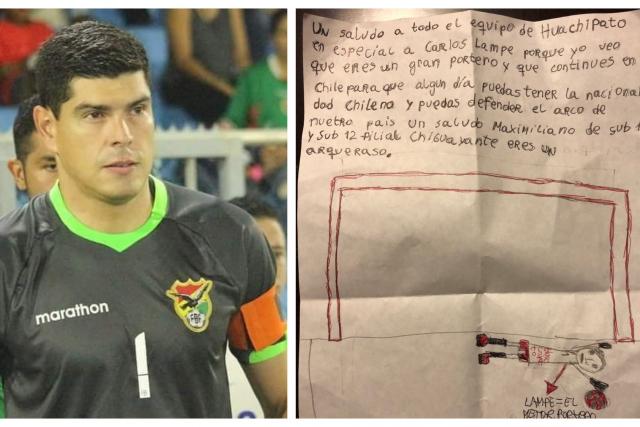 marathon
FBF
1
Un saludo a todo el equipo de Huachipato
en especial a Carlos Lampe porque yo veo
que eres un gran portero y que continues en
Chile para que algun día puedas tener la nacional
dad chileno y puedas defender el arco de
nuetro pais un saludo Maximiliano de sub 1
y sub 12 filial Chiguayante eres un
arqueraso.
LAMPE=EL
MEJOR PORTERO